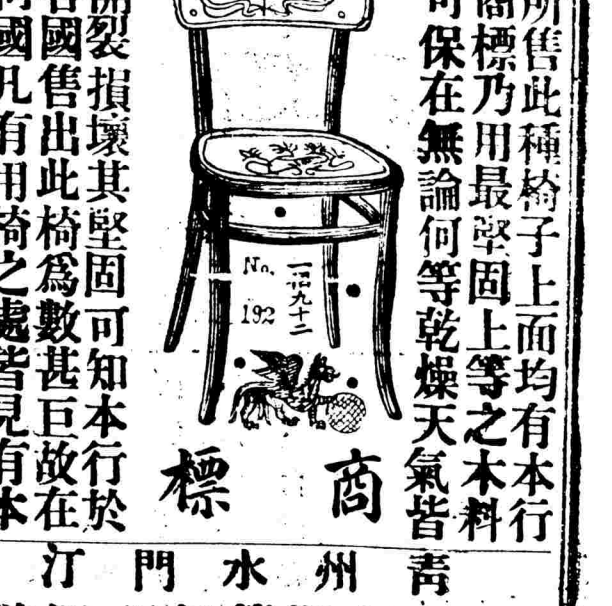 所售此種椅子上面均有本行
商標乃用最堅固上等之木料
可保在無論何等乾燥天氣皆
No. 192
一佰九十二
商標
開裂損壞其堅固可知本行於
各國售出此椅爲數甚巨故在
國凡有用椅之處皆見有本
青州水門汀